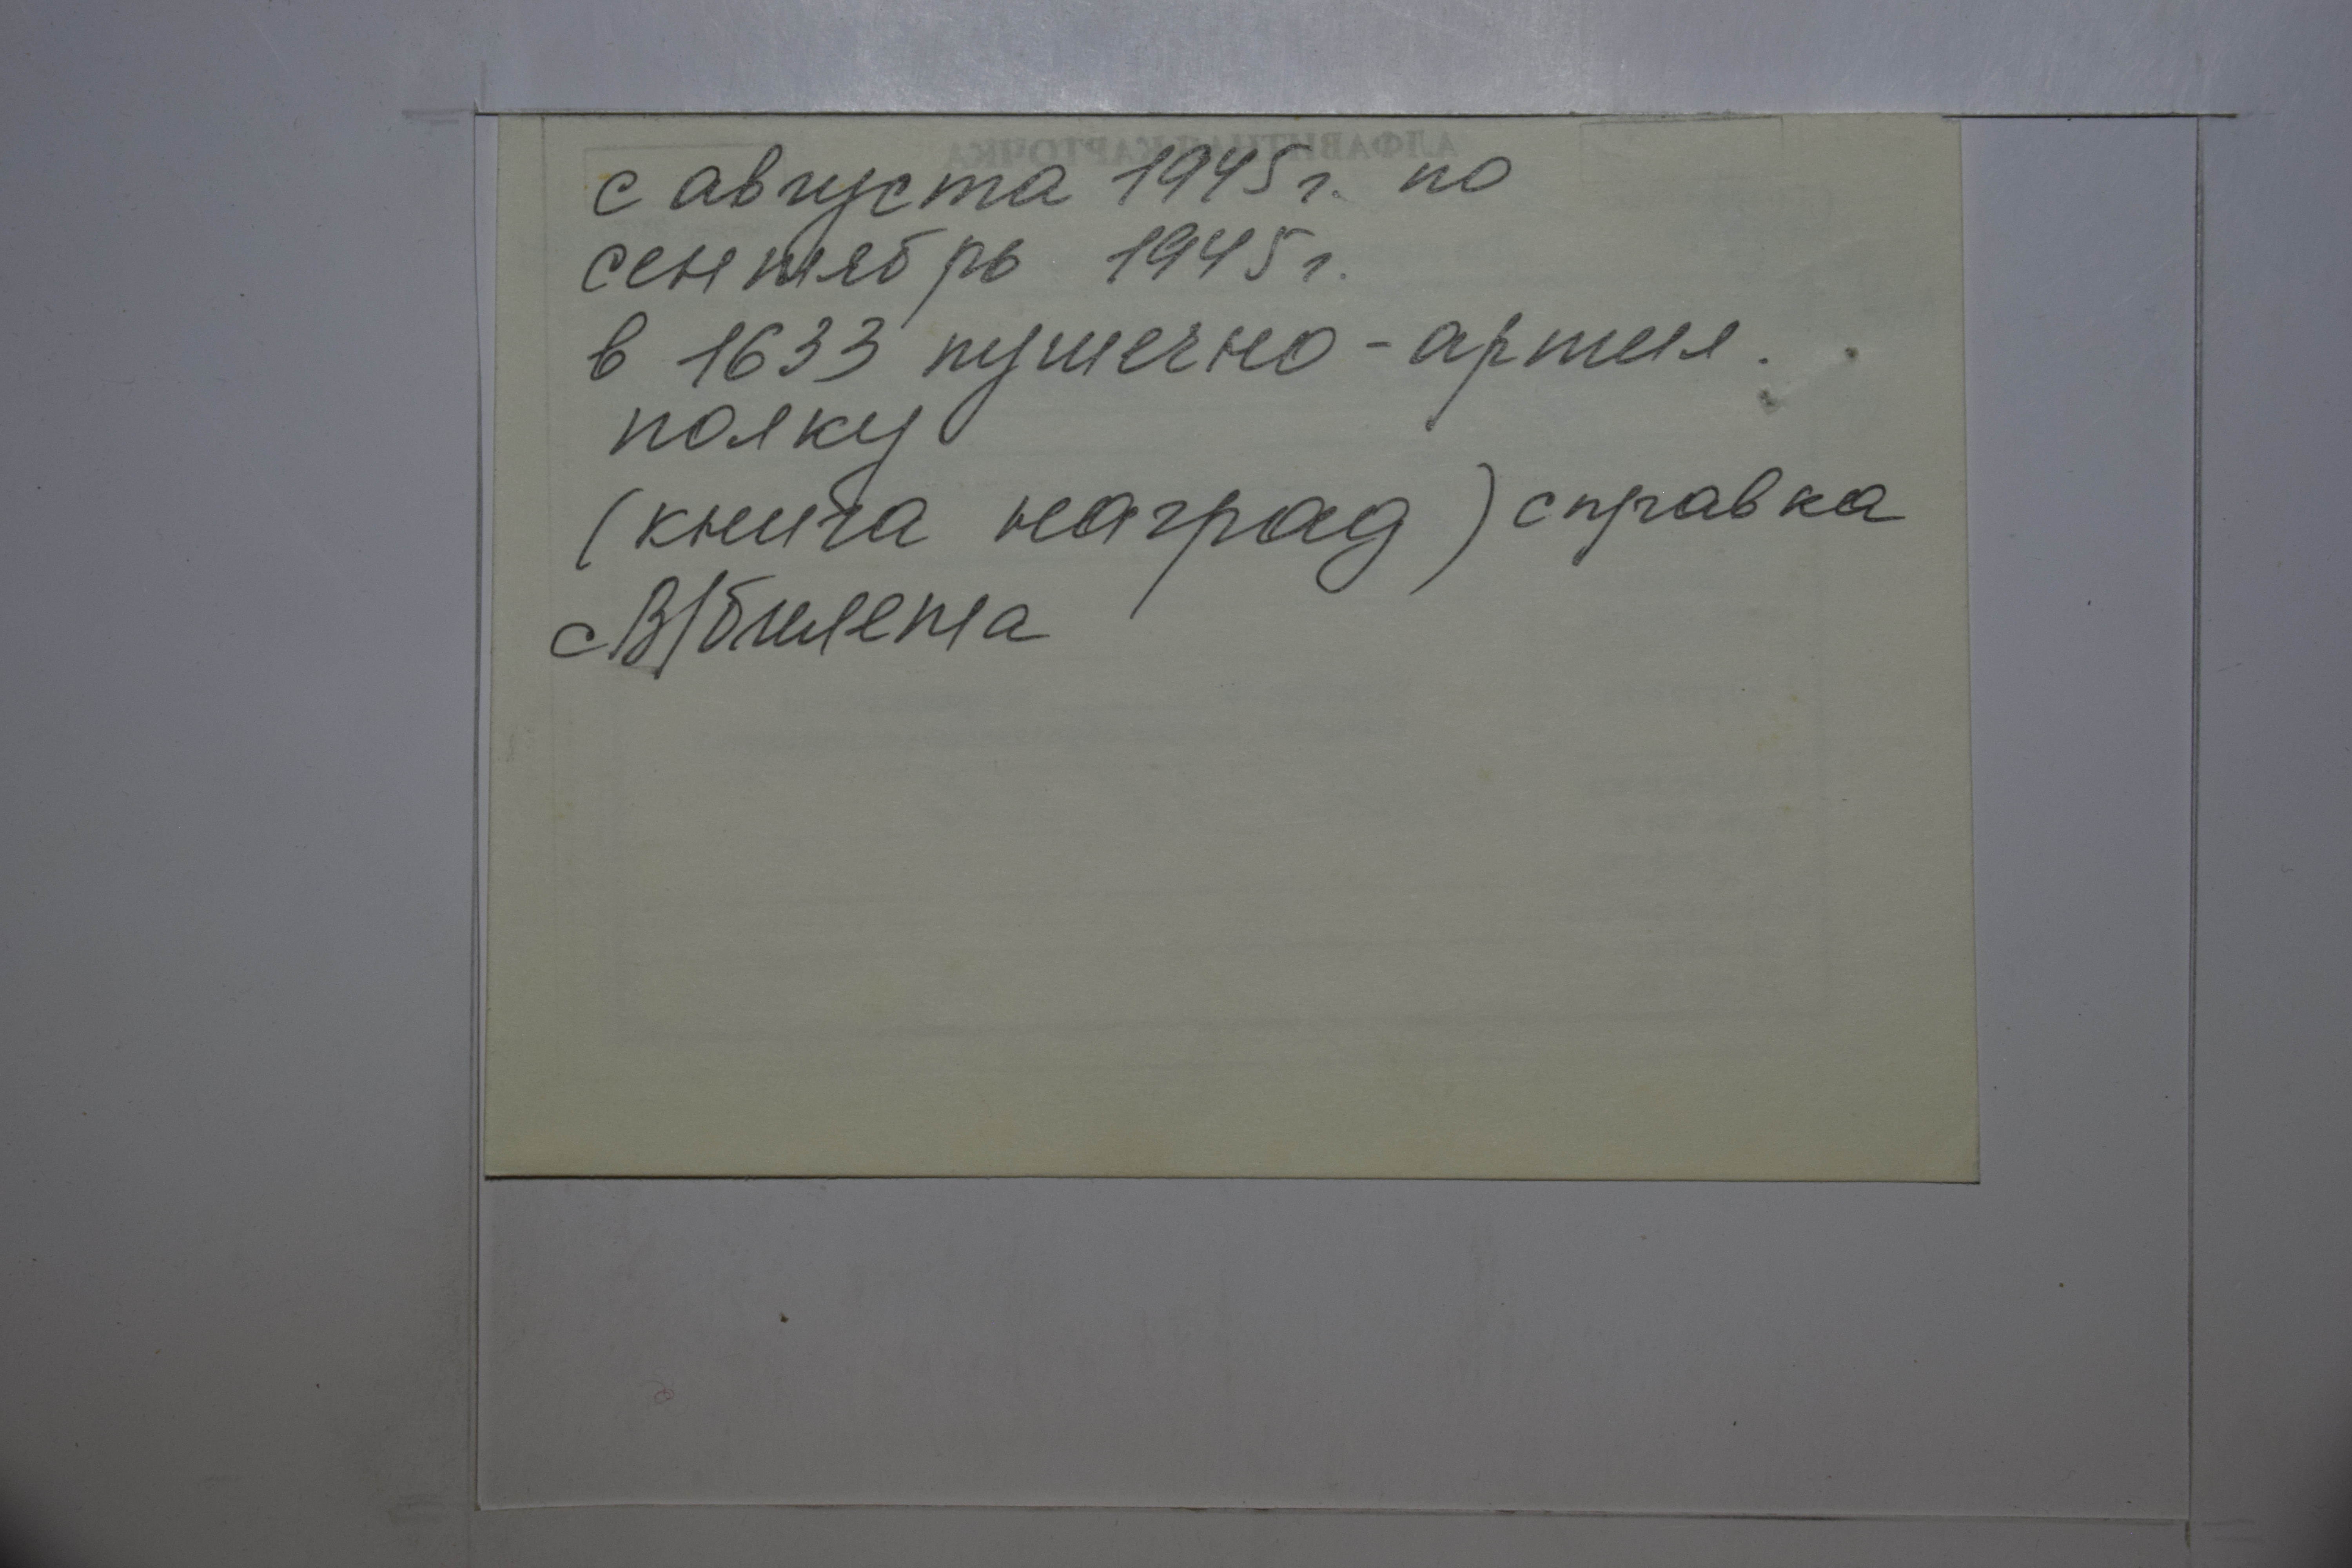 с августа 1945 г. по
сентябрь 1945 г.
в 1633 пушечно-артил.
полку
(книга наград) справка
с В/билета